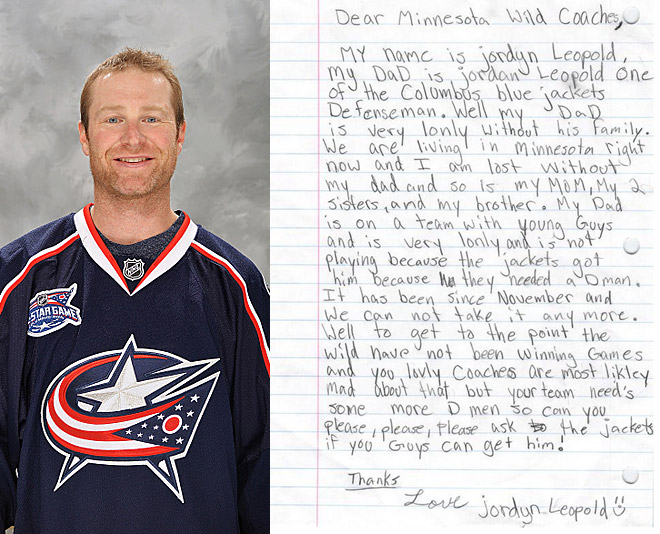 NHL
STAR GAME
Dear Minnesota Wild Coaches,
MY name is jordyn Leopold,
my DaD is jordan Leopold one
of the Columbus blue jackets
Defenseman. Well my DaD
is very lonly without his family.
We are living in Minnesota right
now and I am lost without
my dad and so is my MOM, My 2
sisters, and my brother. My Dad
is on a team with young Guys
and is very lonly and is not
playing because the jackets got
him because they needed a Dman.
It has been since November and
We can not take it any more.
Well to get to the point the
wild have not been winning Games
and you lovly Coaches are most likley
mad about that but your team need's
some more D men so can you
please, please, Please ask the jackets
if you Guys can get him!
Thanks
Love jordyn Leopold